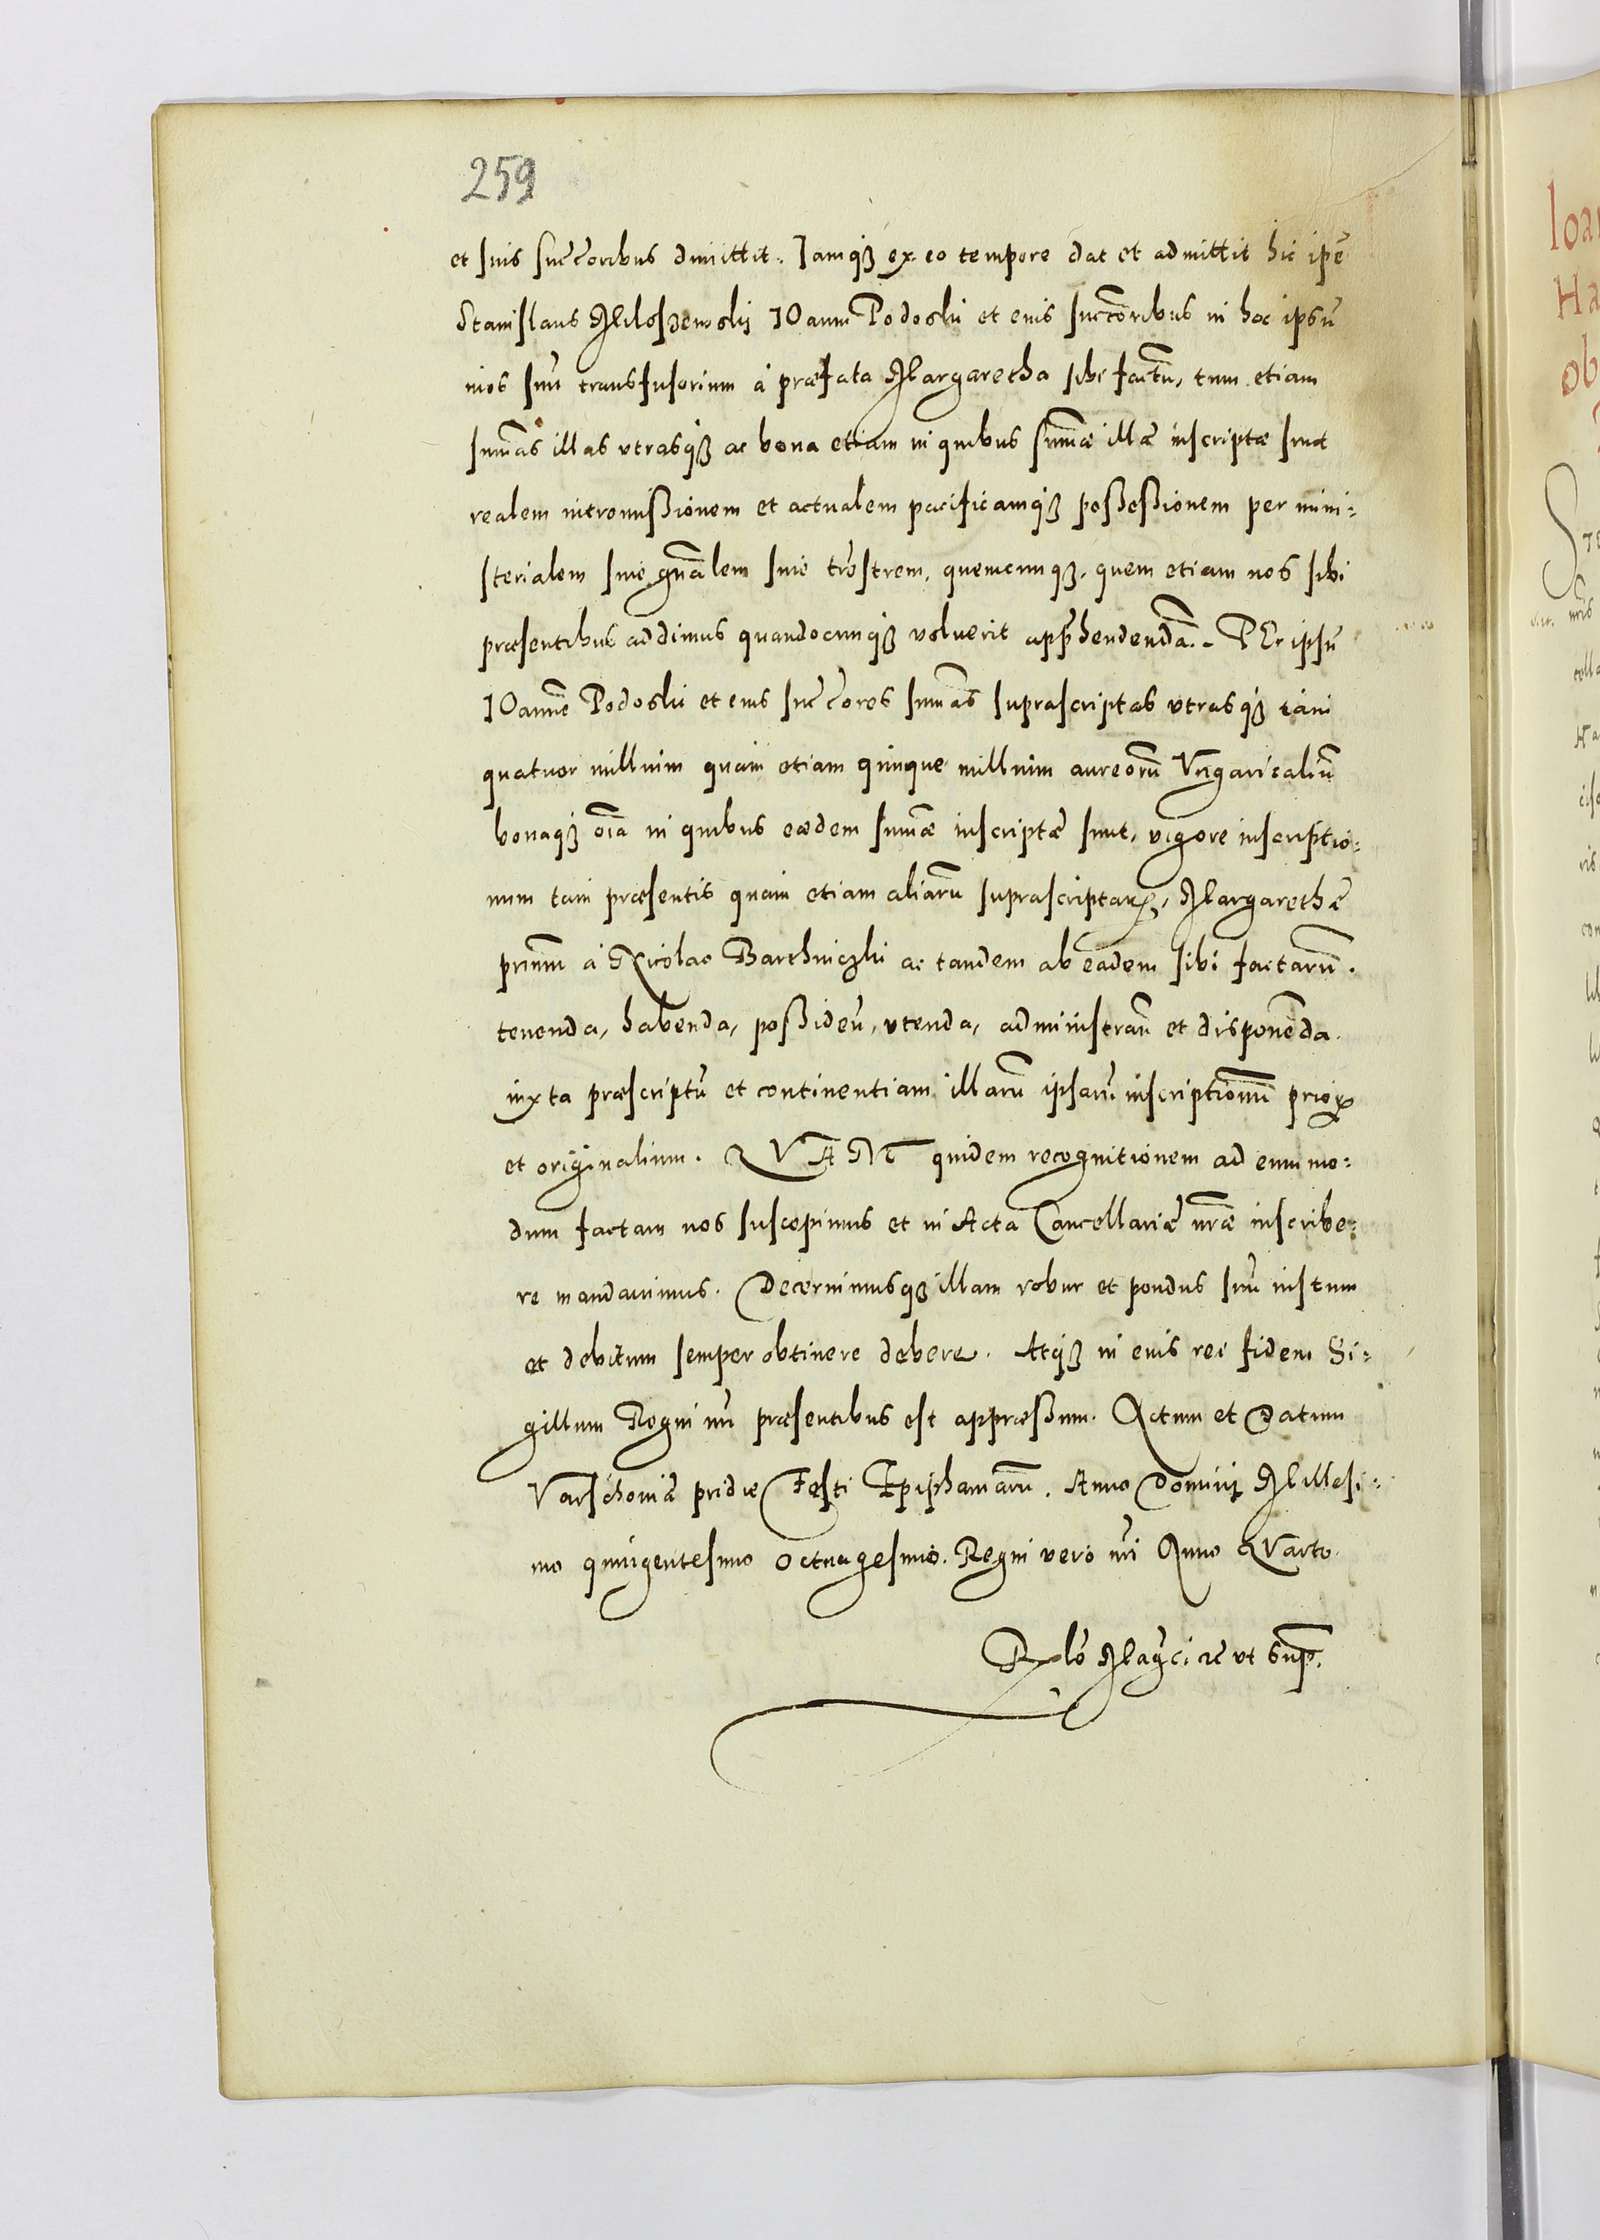 259
et suis succoribus dmittit. Iamqз ex eo tempore dat et admittit hic ipē
Stanislaus Miloszewskj IOanni Podoski et eius succōribus in hoc ipsū
ius suū transfusorium á præfata Margaretha sibi factū, tum etiam
sum̄as illas vtrasqз ac bona etiam in quibus sum̄æ illæ inscriptæ sunt
realem intromißionem et actualem pacificamqз poßeßionem per mini:
sterialem siue gnālem siue trrēstrem, quemcunqз, quem etiam nos sibi
præsentibus addimus quandocunqз voluerit appr̄hendendā. PEr ipsū
IOannē Podoski et eius succ̄ores sum̄as suprascriptas vtrasqз tám
quatuor millium quám etiam quinque millium aureorū Vngaricaliū
bonaqз oīa in quibus eædem sum̄æ inscriptæ sunt, vigore inscriptio:
num tam præsentis quám etiam aliarū suprascriptaꝝ, Margarethæ
primū á Nicolao Barthniczki ac tandem ab eadem sibi factarū.
tenenda, habenda, poßideñ, vtenda, administrañ et disponēda
iuxta præscriptū et continentiam illarū ipsarū inscriptionū prioꝝ
et originalium. QVAM quidem recognitionem ad eum mo:
dum factam nos suscepimus et in Acta Cancellariæ nr̄æ inscribe:
re mandauimus. Decernimusqз illam robur et pondus suū iustum
et debitum semper obtinere debere. Atqз in eius rei fidem Si:
gillum Regni nr̄i præsentibus est appræßum. Actum et Datum
Varschouiæ pridie Festi Epiphaniarū. Anno Dominj Millesi:
mo quingentesimo octuagesimo. Regni vero nr̄i Anno QVarto.
ut sup.